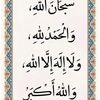 سُبْحَانَ اللهِ،
وَالْحَمْدُ لِلهِ،
وَلَا إِلَهَ إِلَّا اللهُ،
وَاللهُ أَكْبَرُ